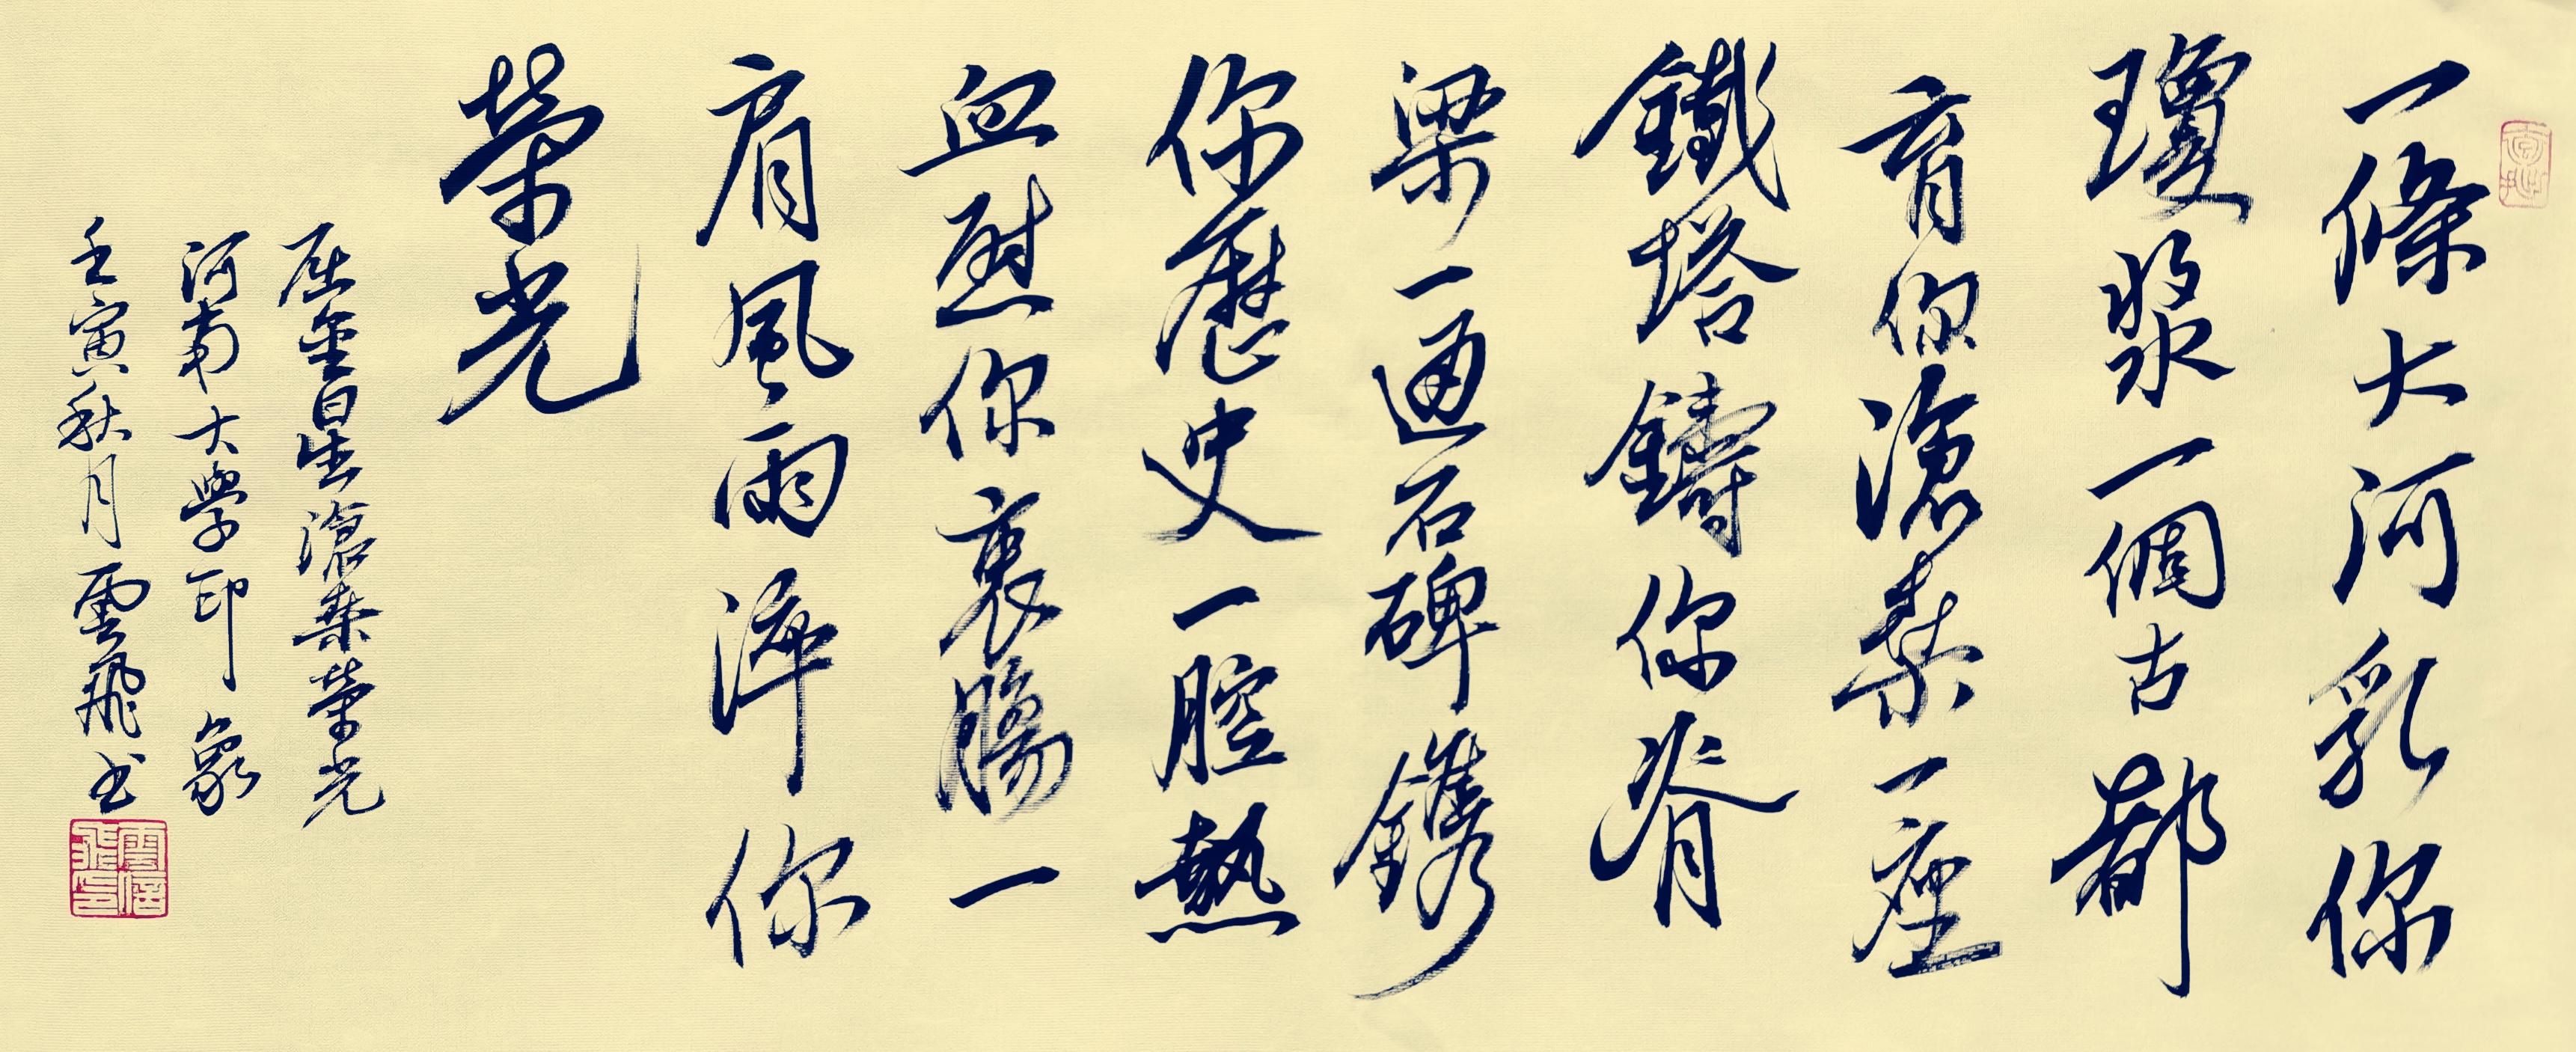 一條大河乳你
瓊漿一個古都
育你滄桑一座
鐵塔鑄你脊
梁一通石碑鐫
你歷史一腔熱
血慰你衷腸一
肩風雨洗你
榮光
屈金星滄桑榮光
河南大學印象
壬寅秋月雲飛书